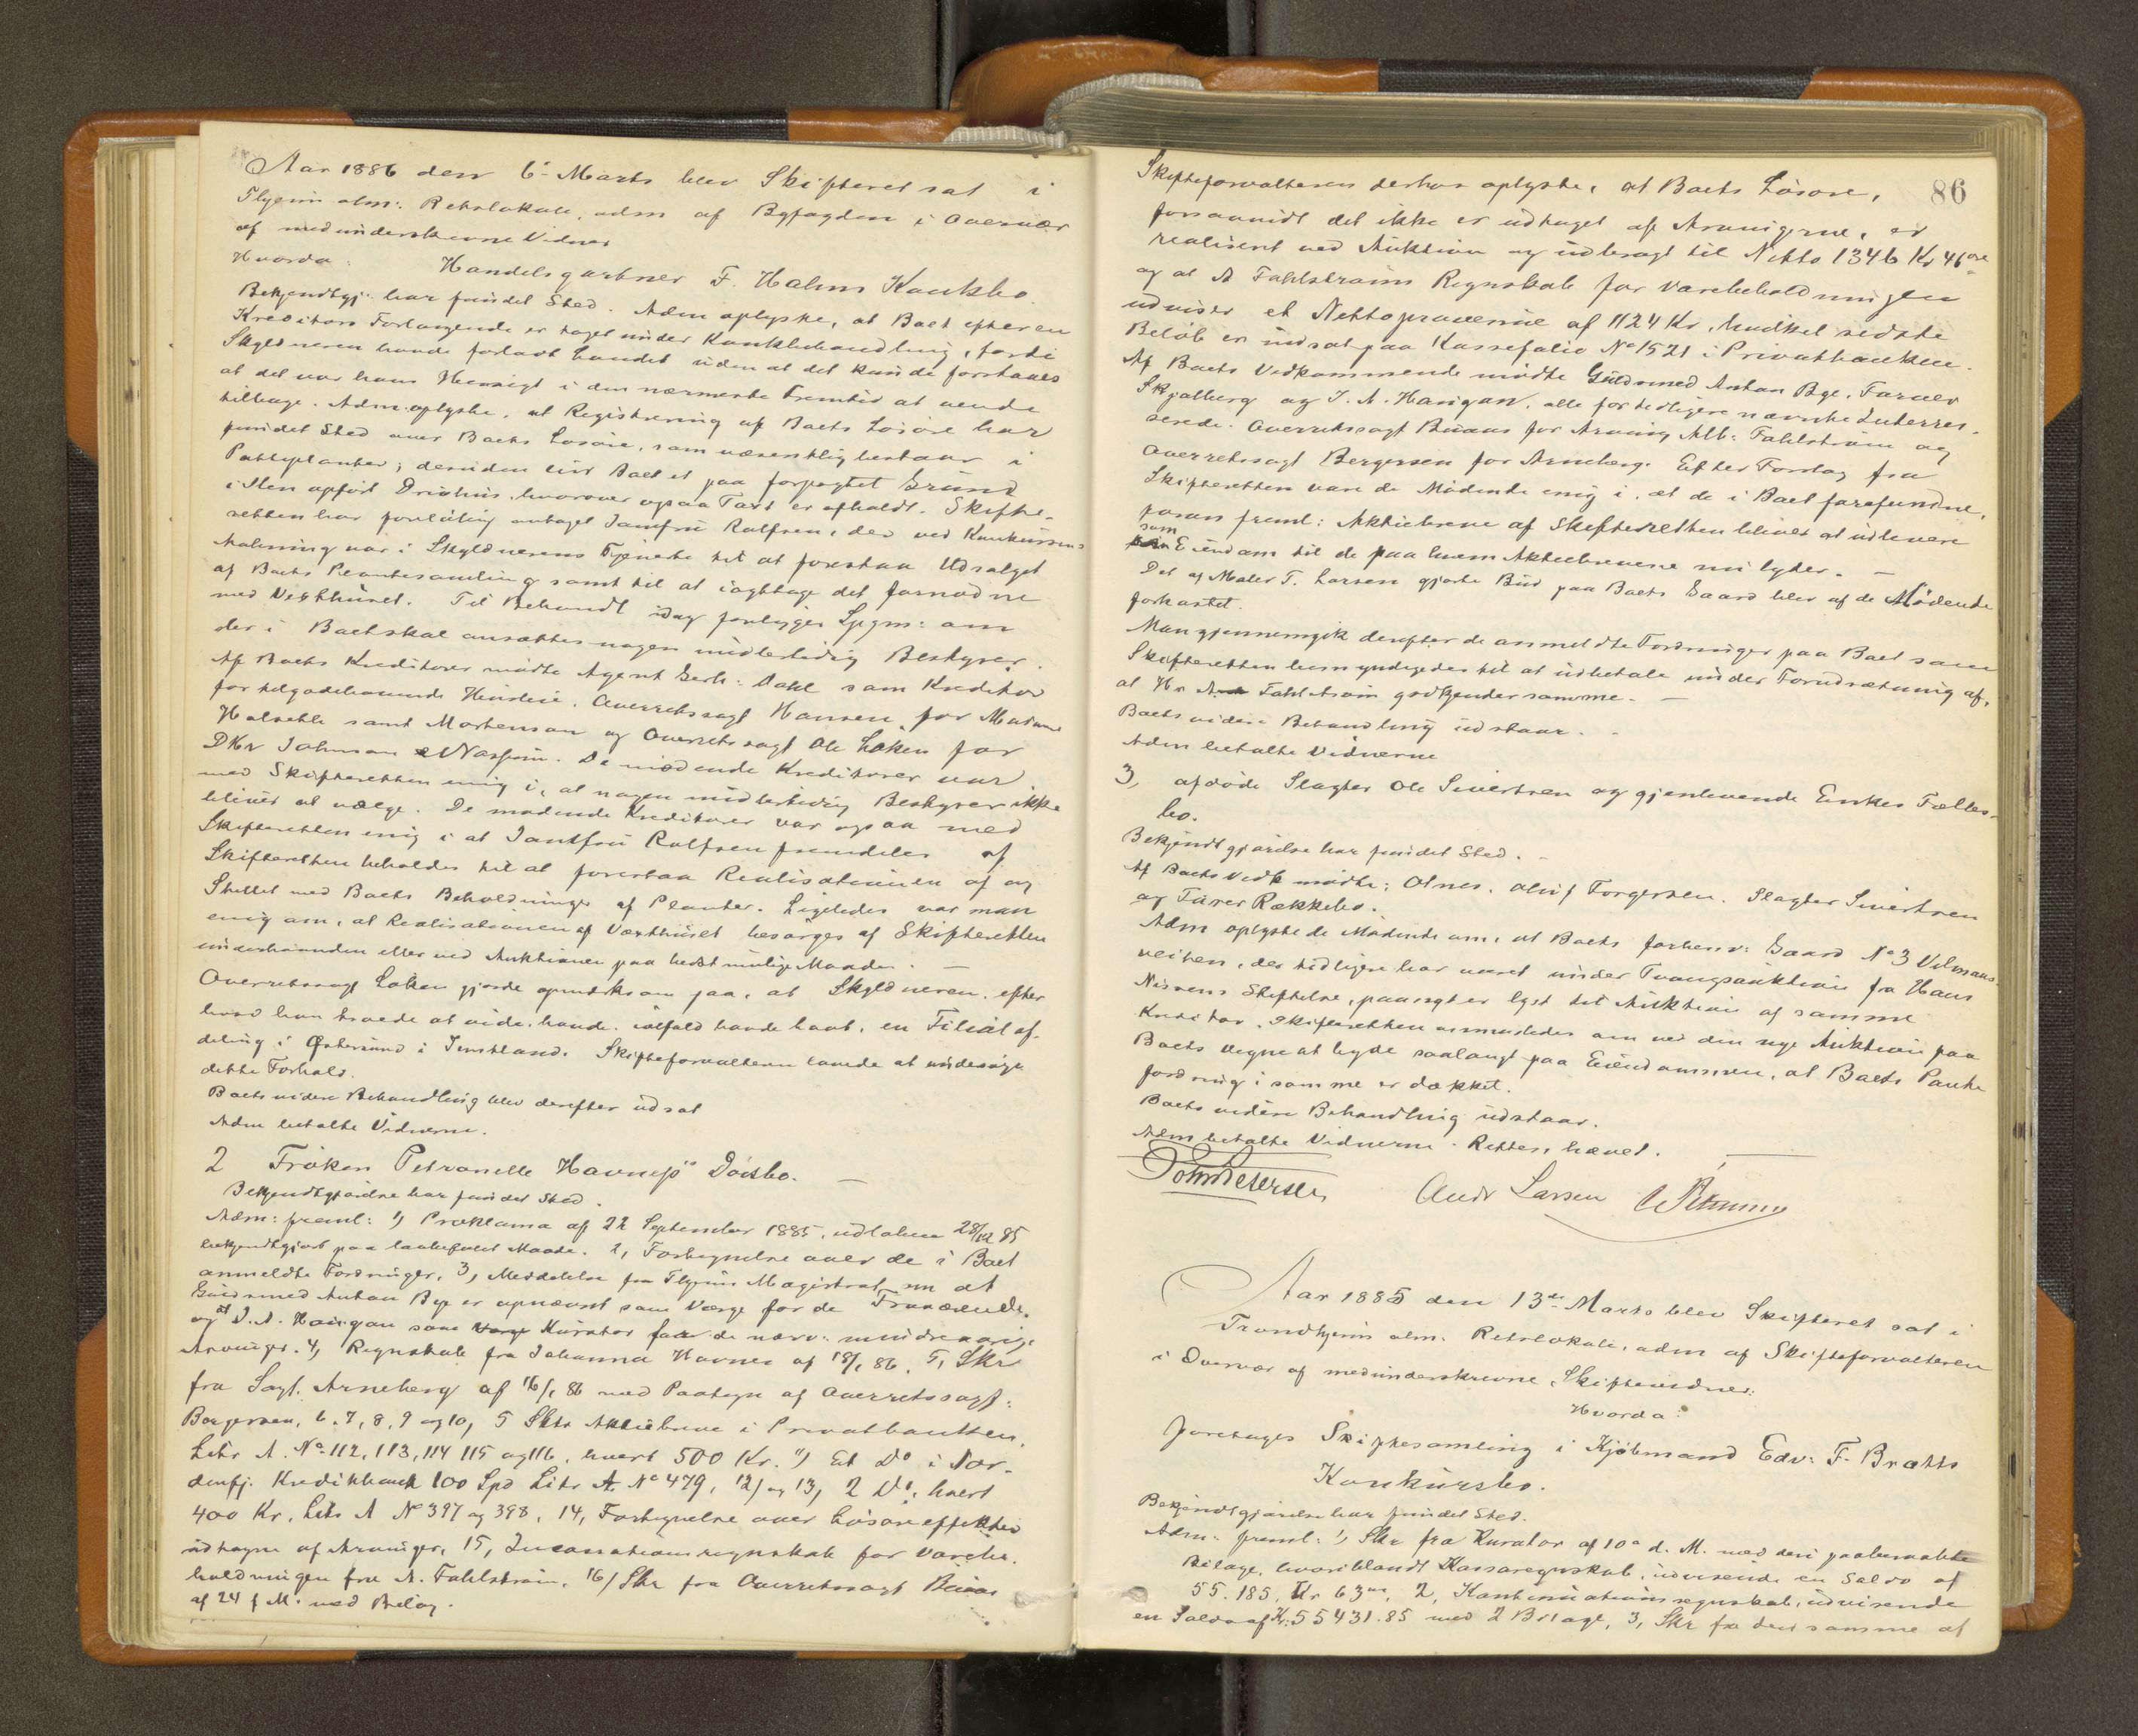 Aar 1886 den 6te Marts blev Skifteret sat i
Thjems alm: Retslokale, adm af Byfogden i Overvær
af medunderskrevne Vidner
Hvorda:
Handelsgartner F. Holms Konkbo.
Bekjendtgj: har fundet Sted. Adm oplyste, at Boet efter en
Kreditors Forlangende er taget under Konkbehandling, fordi
Skyldneren havde forladt Landet uden at det kunde forstaaes
at det var hans Hensigt i den nærmeste Fremtid at vende
tilbage. Adm. oplyste, at Registrering af Boets Løsøre har
fundet Sted over Boets Løsøre, som væsentlig bestaar i
Potteplanter; desuden eier Boet et paa forpagtet Grund
i Ilen opført Drivhus, hvorover ogsaa Taxt er afholdt. Skifte-
retten har foreløbig antaget Jomfru Rolfsen, der ved Konkursens
Aabning var i Skyldnerens Tjeneste til at forestaa Udsalget
af Boets Plantesamling samt til at iagttage det fornødne
med Vexthuset. Til Behandl idag foreligger Spgm: om
der i Boet skal ansættes nogen midlertidig Bestyrer.
Af Boets Kreditorer mødte Agent Gerh: Dahl som Kreditor
for tilgodehavende Husleie. Overretssagf Hansen for Madame
Holsetli samt Mortenson og Overretssagf Ole Løken for
DHr Johnson & Nassum. De mødende Kreditorer var
med Skifteretten enig i, at nogen midlertidig Bestyrer ikke
bliver at vælge. De mødende Kreditorer var ogsaa med
Skifteretten enig i at Jomfru Rolfsen fremdeles af
Skifteretten beholdes til at forestaa Realisationen af og
Stellet med Boets Beholdninger af Planter. Ligeledes var man
enig om, at Realisationen af Vexthuset besørges af Skifteretten
underhaanden eller ved Auktioner paa bedst mulige Maade. —
Overretssagf Løken gjorde opmerksom paa, at Skyldneren, efter
hvad han troede at vide, havde, ialfald havde havt, en Filialaf-
deling i Østersund i Jemtland. Skifteforvalteren lovede at undersøge
dette Forhold.
Boets videre Behandling blev derefter udsat
Adm betalte Vidnerne.
2 Frøken Petronelle Havnes's Dødsbo. —
Bekjendtgjørelse har fundet Sted.
Adm: freml: 1) Proklama af 22 September 1885, udløben 28/12 85
bekjendtgjort paa lovbefalet Maade. 2, Fortegnelse over de i Boet
anmeldte Fordringer, 3, Meddelelse fra Thjems Magistrat om at
Guldsmed Anton Bye er opnævnt som Værge for de Fraværende
og at J. A. Haugan som Kurator for de nærv: mindreaarige
Arvinger. 4, Regnskab fra Johanna Havnes af 18/1 86. 5, Skr
fra Sagf. Arneberg af 16/1 86 med Paategn af Overretssagf:
Borgersen, 6, 7, 8, 9 og 10, 5 Stkr Aktiebreve i Privatbanken,
Litr A. No 112, 113, 114 115 og 116, hvert 500 Kr. 11) Et Do i Nor-
denfj. Kreditbank 100 Spd Litr A No 479, 12) og 13, 2 Do, hvert
400 Kr, Litr A No 397 og 398, 14, Fortegnelse over Løsøreeffekter
udtagne af Arvinger, 15, Incassationsregnskab for Varebe-
holdningen fra A. Fahlstrøm, 16) Skr fra Overretssagf Buaas
af 24 f M. med Bilag.
86
Skifteforvalteren derhos oplyste, at Boets Løsøre,
forsaavidt det ikke er udtaget af Arvingerne, er
realiseret ved Auktion og udbragt til Netto 1346 Kr 46 øre
og at A Fahlstrøms Regnskab for Varebeholdningen
udviser et Nettoprovenue af 1124 Kr, hvilket sidste
Beløb er indsat paa Kassefolio No 1521 i Privatbanken.
Af Boets Vedkommende mødte Guldsmed Anton Bye, Farver
Skjølberg og J. A. Haugan, alle for tidligere nævnte Interres-
serede. Overretssagf Buaas for Arving Alb: Fahlstrøm og
Overretssagf Bergersen for Arneberg. Efter Forslag fra
Skifteretten vare de Mødende enig i, at de i Boet forefundne,
foran freml: Aktiebreve af Skifteretten bliver at udlevere
som Eiendom til de paa hvem Aktiebrevene nu lyder. —
Det af Maler T. Larsen gjorte Bud paa Boets Gaard blev af de Mødende
forkastet.
Man gjennemgik derefter de anmeldte Fordringer paa Boet som
Skifteretten bemyndigedes til at udbetale under Forudsætning af,
at Hr A. Fahlstrøm godkjender samme. —
Boets videre Behandling udstaar.
Adm betalte Vidnerne
3, afdøde Slagter Ole Sivertsen og gjenlevende Enkes Fælles-
bo.
Bekjendtgjørelse har fundet Sted.
Af Boets Vedk mødte: Olsnes, Oluf Torgersen, Slagter Sivertsen
og Farver Rækkebo.
Adm oplyste de Mødende om, at Boets forhenv: Gaard No 3 Vdmans-
veiten, der tidligere har været under Tvangsauktion fra Hans
Nissens Stiftelse, paanyt er lyst til Auktion af samme
Kreditor. Skifteretten anmodedes om ved den nye Auktion paa
Boets Vegne at byde saalangt paa Eiendommen, at Boets Pante
fordring i samme er dækket.
Boets videre Behandling udstaar.
Adm betalte Vidnerne. Retten hævet.
John Petersen Andr Larsen
Aar 1885 den 13de Marts blev Skifteret sat i
Trondhjems alm: Retslokale, adm af Skifteforvalteren
i Overvær af medunderskrevne Skiftevidner:
Hvorda:
foretages Skiftesamling i Kjøbmand Edv: F. Bratts
Konkursbo.
Bekjendtgjørelse har fundet Sted.
Adm: freml: 1, Skr fra Kurator af 10de d. M. med deri paaberaabte
Bilage, hvoriblandt Kassaregnskab, udvisende en Saldo af
55.185 Kr 63 øre, 2, Kontinuationsregnskab, udvisende
en Saldo af Kr. 55431.85 med 2 Bilage, 3, Skr fra den samme af